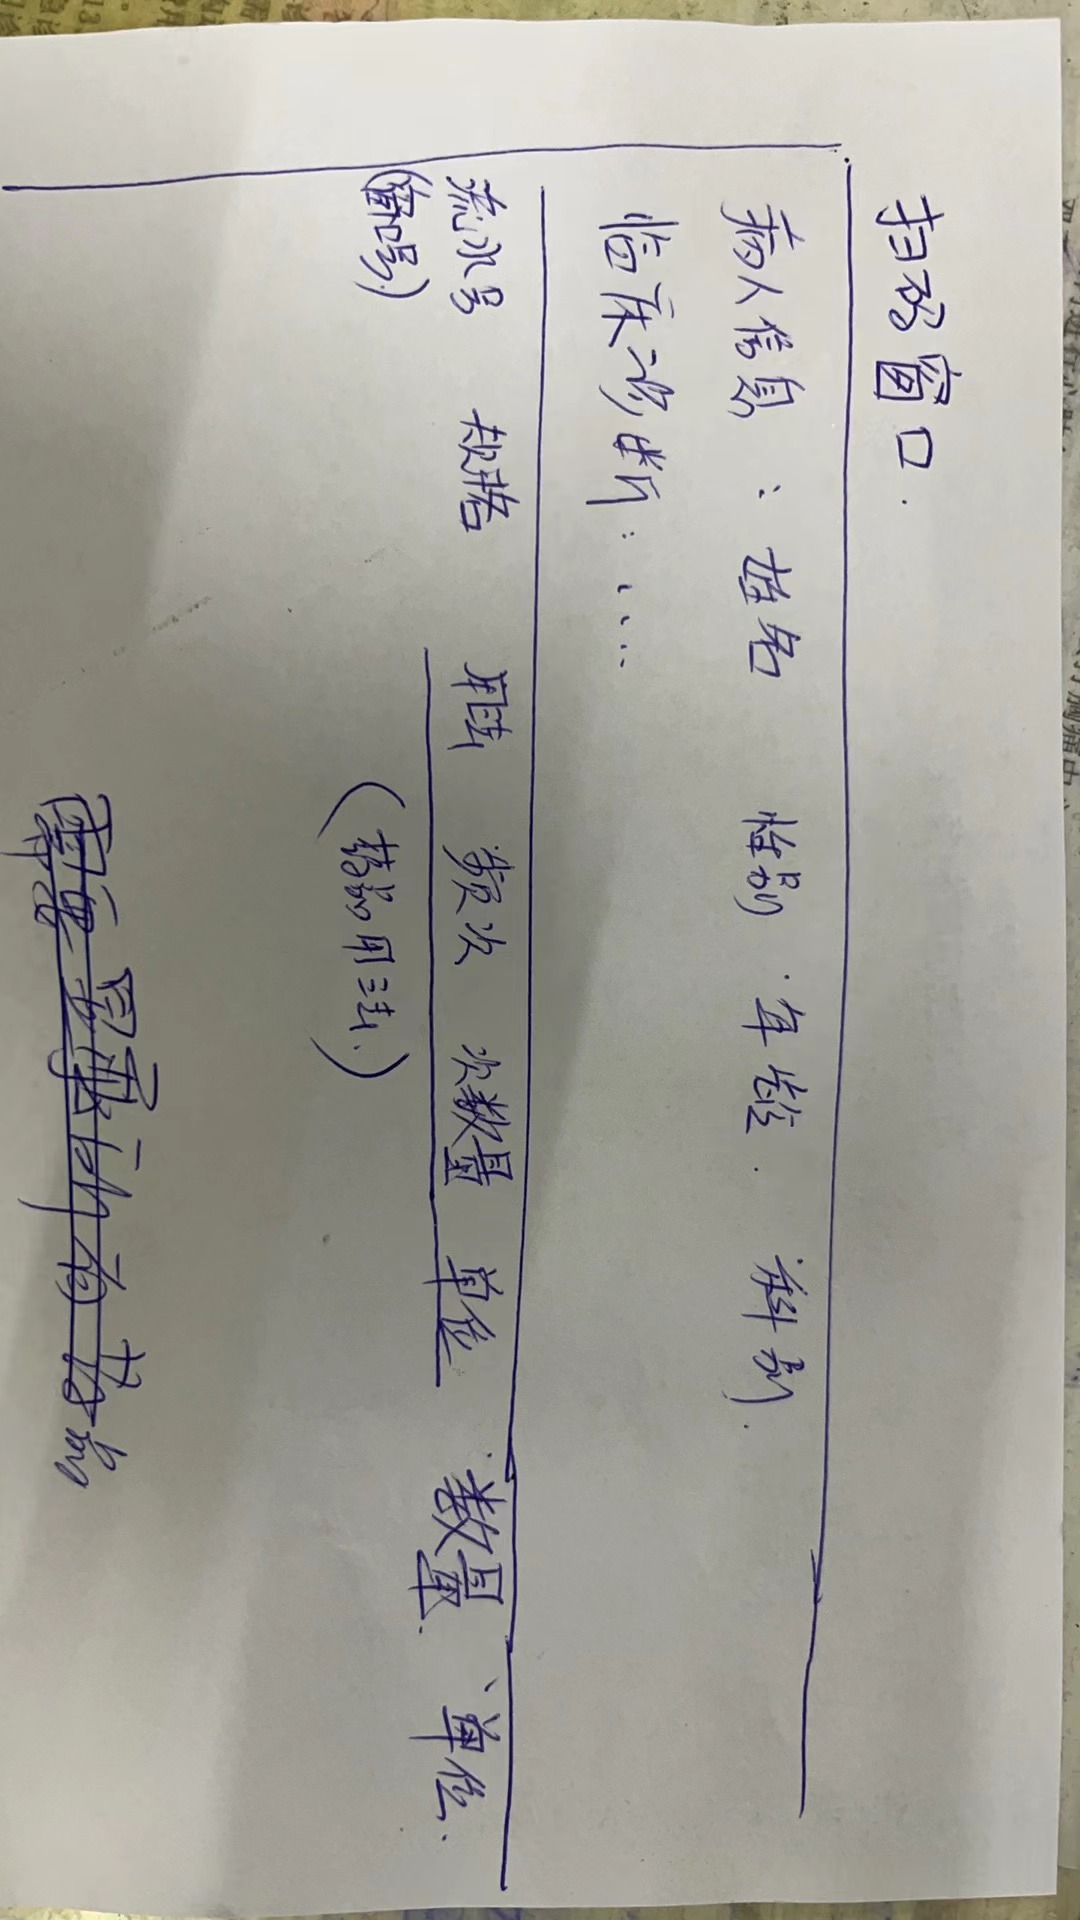 扫码窗口.
病人信息: 姓名 性别. 年龄. 科别.
临床诊断: ....
流水号 规格 用法 频次 次数量 单位. 数量. 单位.
(窗口号)
(药品用法.)